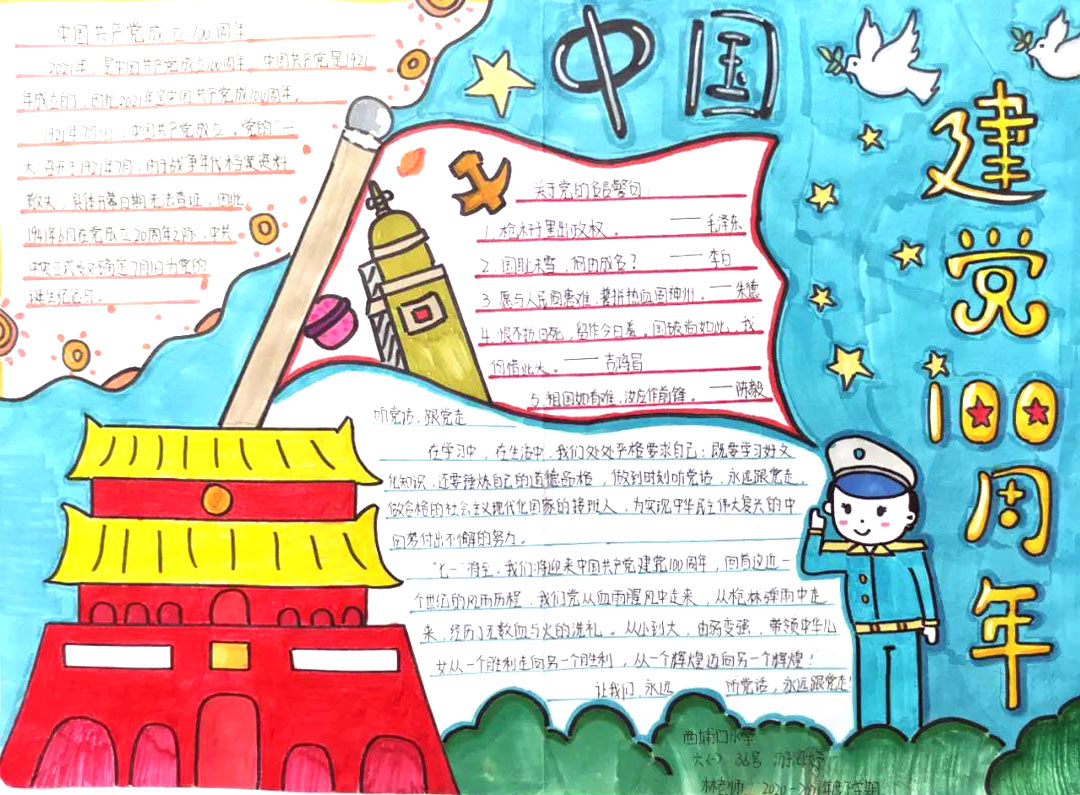 中国
建党100周年
中国共产党成立100周年
2021年,是中国共产党成立100周年。中国共产党是1921
年成立的,因此2021年是中国共产党成100周年。
1921年7月1日,中国共产党成立,党的"一
大"召开于1921年7月,由于战争年代档案资料
散失,具体开幕日期无法查证,因此,
1941年6月在党成立20周年之际,中共
中央正式发文确定7月1日为党的
诞生纪念日。
关于党的名言警句:
1.枪杆子里出政权。——毛泽东
2.国耻未雪,何由成名?——李白
3.愿与人民同患难,誓拼热血固神州。—朱德
4.恨不抗日死,留作今日羞。国破尚如此,我
何惜此头。——吉鸿昌
5.祖国如有难,汝应作前锋。——陈毅
听党话,跟党走
在学习中,在生活中,我们处处严格要求自己:既要学习好文
化知识,还要锤炼自己的道德品格,做到时刻听党话,永远跟党走,
做合格的社会主义现代化国家的接班人,为实现中华民主伟大复兴的中
国梦付出不懈的努力。
"七一"将至,我们将迎来中国共产党建党100周年,回首这近一
个世纪的风雨历程,我们党从血雨腥风中走来,从枪林弹雨中走
来,经历了无数血与火的洗礼。从小到大,由弱变强,带领中华儿
女从一个胜利走向另一个胜利,从一个辉煌迈向另一个辉煌!
让我们,永远 听党话,永远跟党走!
西埔口小学
六(一) 36号
林老师 2020-2021年下学期